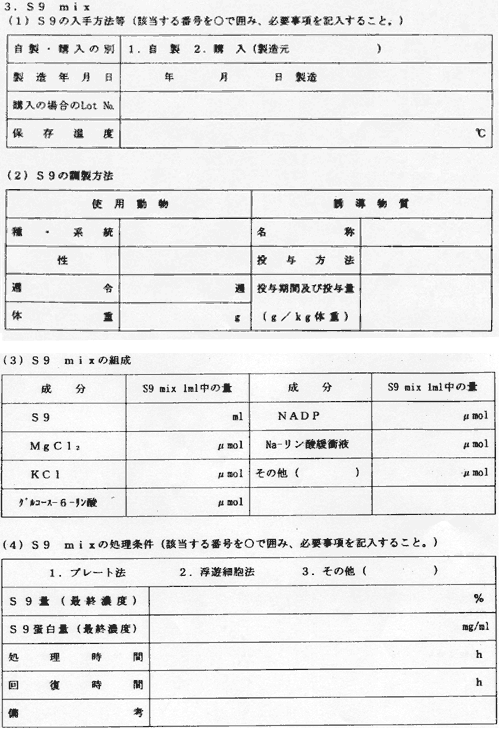 3. S9 mix
(1) S9の入手方法等 (該当する番号を○で囲み、必要事項を記入すること。)
自製・購入の別 1. 自 製 2. 購 入 (製造元 )
製造年月日 年 月 日 製造
購入の場合のLot No.
保存温度 ℃
(2) S9の調製方法
使用動物 誘導物質
種・系統 名称
性 投与方法
週令 週 投与期間及び投与量
体重 g (g/kg体重)
(3) S9 mixの組成
成 分 S9 mix 1ml中の量 成 分 S9 mix 1ml中の量
S9 ml NADP μmol
MgCl₂ μmol Na-リン酸緩衝液 μmol
KCl μmol その他 ( ) μmol
グルコース-6-リン酸 μmol
(4) S9 mixの処理条件 (該当する番号を○で囲み、必要事項を記入すること。)
1. プレート法 2. 浮遊細胞法 3. その他 ( )
S9量 (最終濃度) %
S9蛋白量 (最終濃度) mg/ml
処理時間 h
回復時間 h
備考